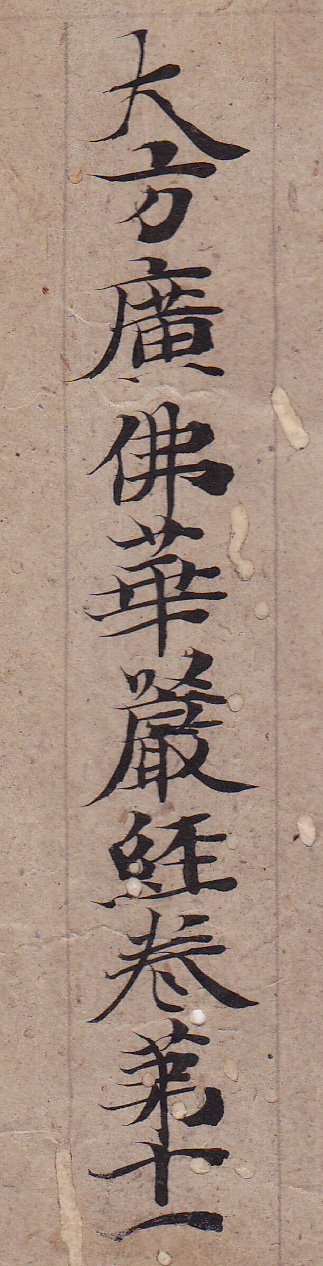 大方廣佛華嚴經卷第十一